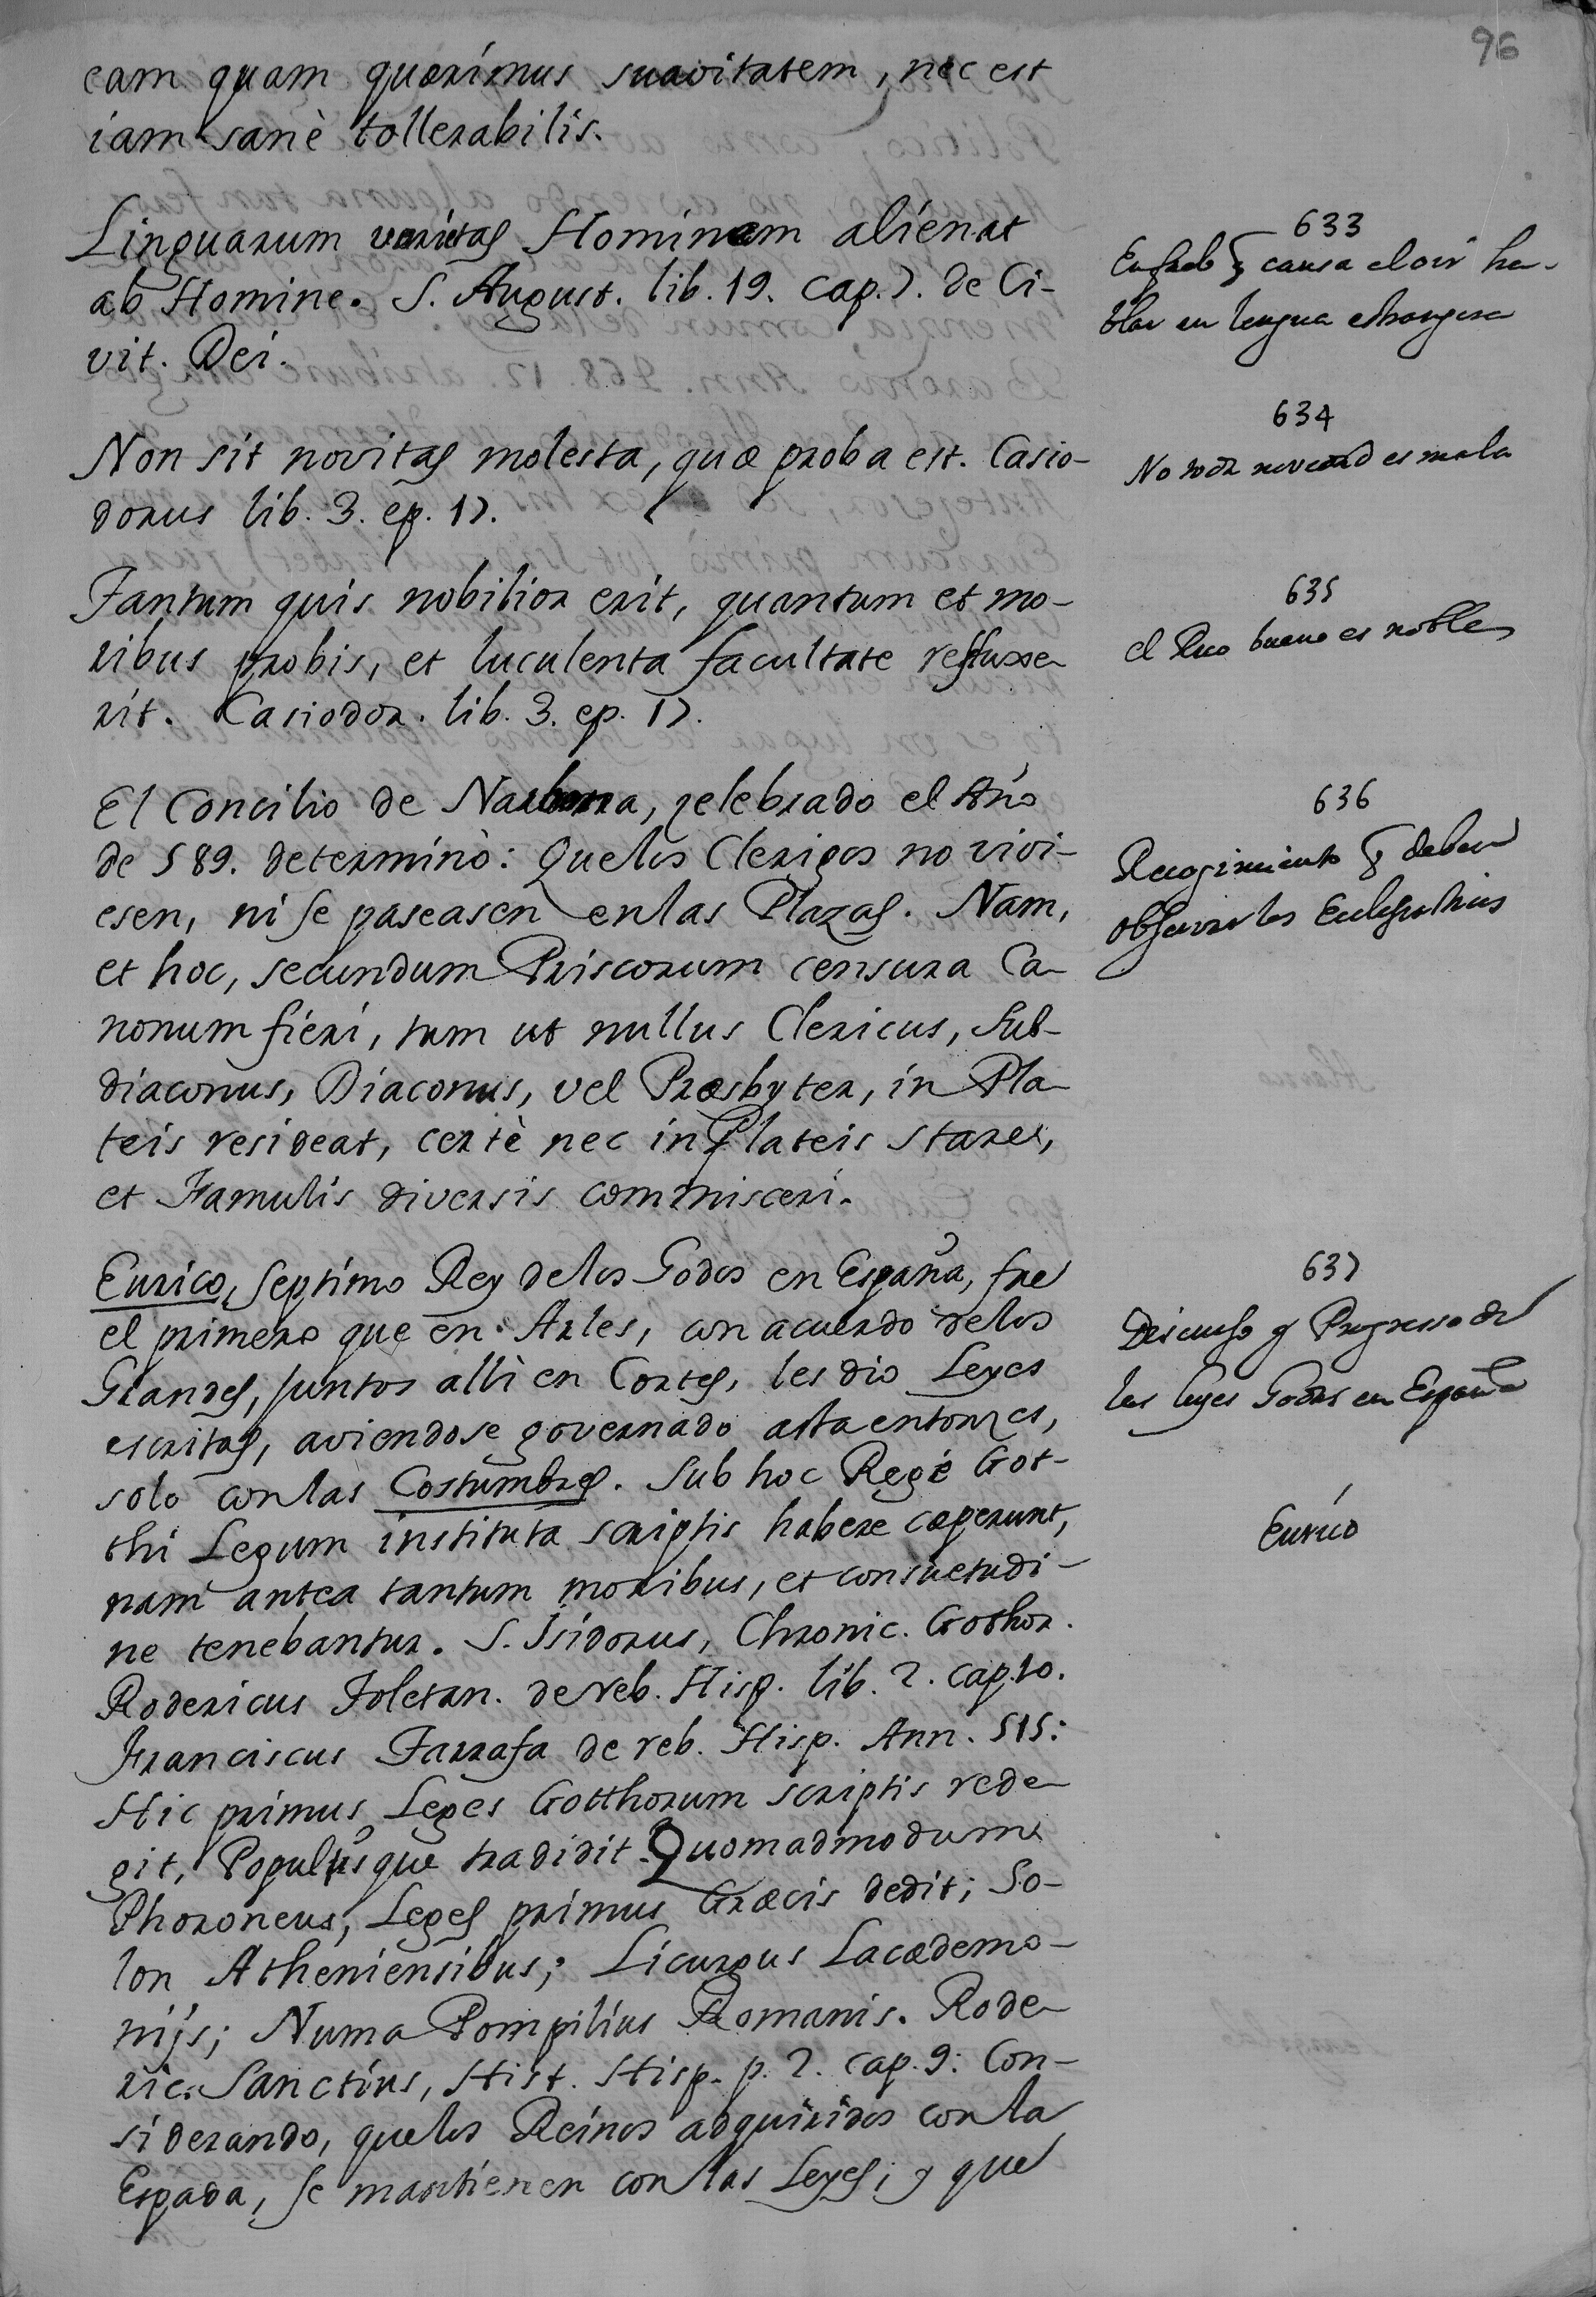 96
eam quam quærimus suavitatem, nec est
iam sanè tollerabilis.
633
Linguarum varietas Hominem alienat
ab Homine. S. August. lib. 19. cap. 7. de Ci-
vit. Dei.
causa el oir ha-
blar en lengua estrangera
634
Non sit novitas molesta, quæ proba est. Casio-
dorus lib. 3. ep. 17.
No toda novedad es mala
635
Tantum quis nobilior erit, quantum et mo-
ribus probis, et luculenta facultate refluxe
rit. Casiodor. lib. 3. ep. 17.
el Rico bueno es noble
636
El Concilio de Narbona, zelebrado el Año
de 589. determinò: Que los Clerigos no vivi-
esen, ni se paseasen en las Plazas. Nam,
et hoc, secundum Priscorum censura Ca-
nonum fieri, tum ut nullus Clericus, Sub-
diaconus, Diaconus, vel Præsbyter, in Pla-
teis resideat, certè nec in Plateis stare,
et Famulis diversis commisceri.
Recogimiento q deben
observar los Eclesiasticos
637
Eurico, septimo Rey de los Godos en España, fue
el primero que en Arles, con acuerdo de los
Grandes, juntos allì en Cortes, les dio Leyes
escritas, aviendose governado asta entonzes,
solo con las Costumbres. Sub hoc Rege Got-
thi Legum instituta scriptis habere cæperunt,
nam antea tantum moribus, et consuetudi-
ne tenebantur. S. Isidorus, Chronic. Gothor.
Rodericus Toletan. de reb. Hisp. lib. 2. cap. 10.
Franciscus Tarrafa de reb. Hisp. Ann. 515:
Hic primus Leges Gotthorum scriptis rede-
git, Populisque tradidit. Quomadmodum
Phoroneus, Leges primus Græcis dedit; So-
lon Atheniensibus; Licurgus Lacædemo-
nijs; Numa Pompilius Romanis. Rode-
ric. Sanctius, Hist. Hisp. p. 2. cap. 9: Con-
siderando, que los Reinos adquiridos con la
Espada, se mantienen con las Leyes; y que
Discurso y Progresso de
las leyes Godas en España
Eurico